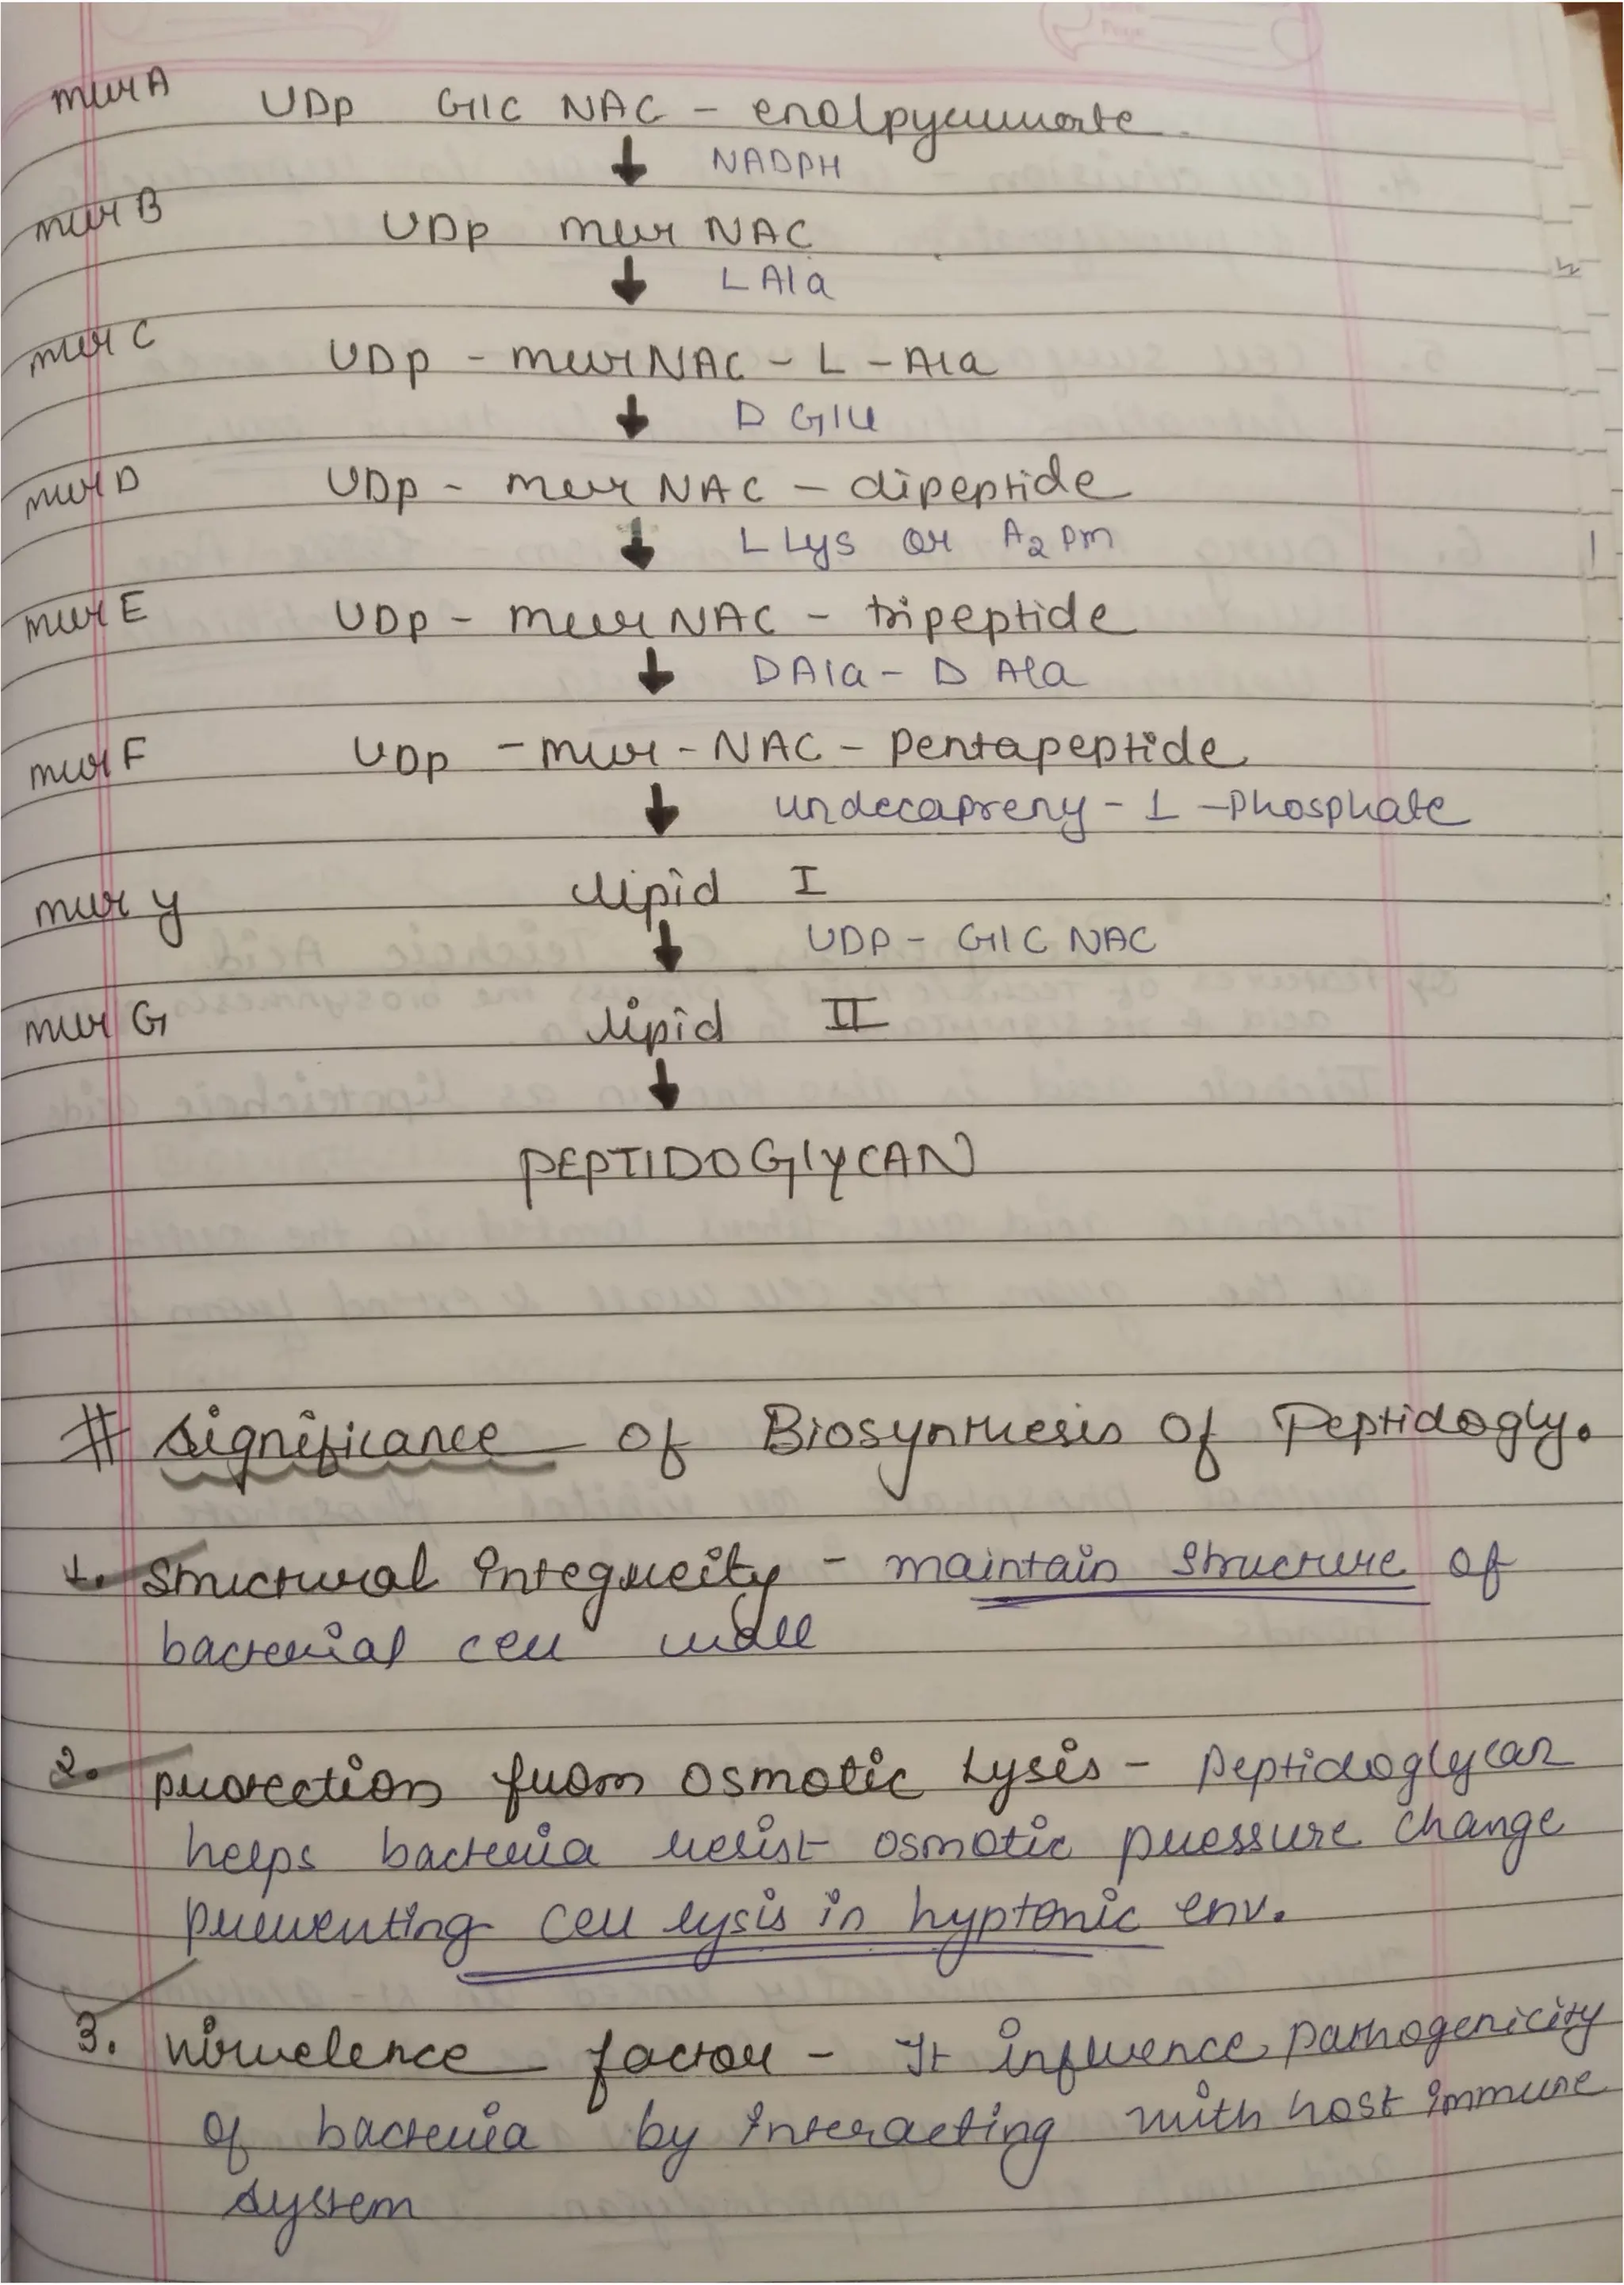 murA UDp GlC NAC - enolpyuuvate
↓ NADPH
mur B UDp mur NAC
↓ L Ala
mur C UDp - murNAC - L - Ala
↓ D Glu
mur D UDp - mur NAC - dipeptide
↓ L Lys or A2 pm
mur E UDp - mur NAC - tripeptide
↓ D Ala - D Ala
mur F UDp - mur - NAC - Pentapeptide
↓ undecapreny - 1 - Phosphate
mur y lipid I
↓ UDP - GlC NAC
mur G lipid II
↓
PEPTIDOGlyCAN
# significance of Biosynthesis of Peptidogly.
1. Structural integrity - maintain structure of
bacterial cell wall
2. protection from osmotic Lysis - Peptidoglycan
helps bacteria resist osmotic pressure change
preventing cell lysis in hyptonic env.
3. virulence factor - It influence pathogenicity
of bacteria by interacting with host immune
system